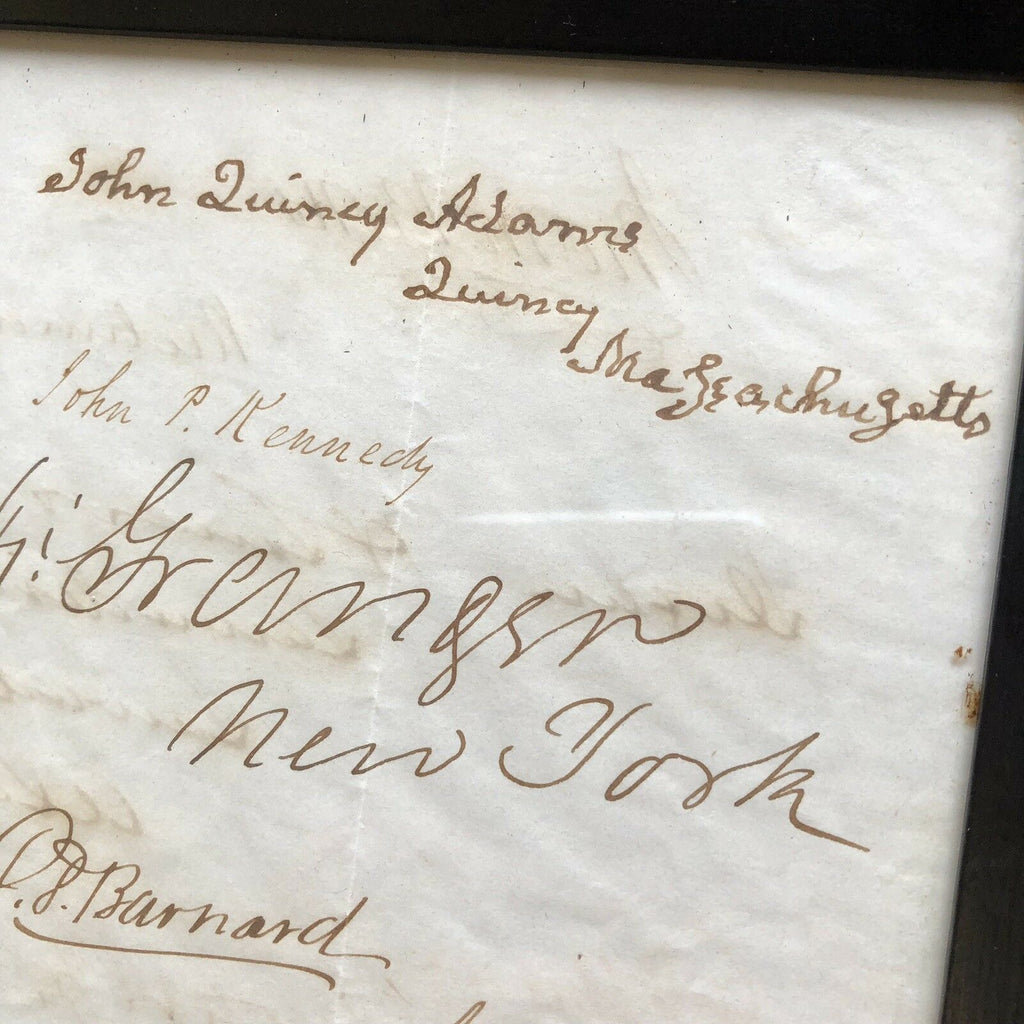 John Quincy Adams
Quincy
Massachusetts
John P. Kennedy
Granger
New York
D. D. Barnard